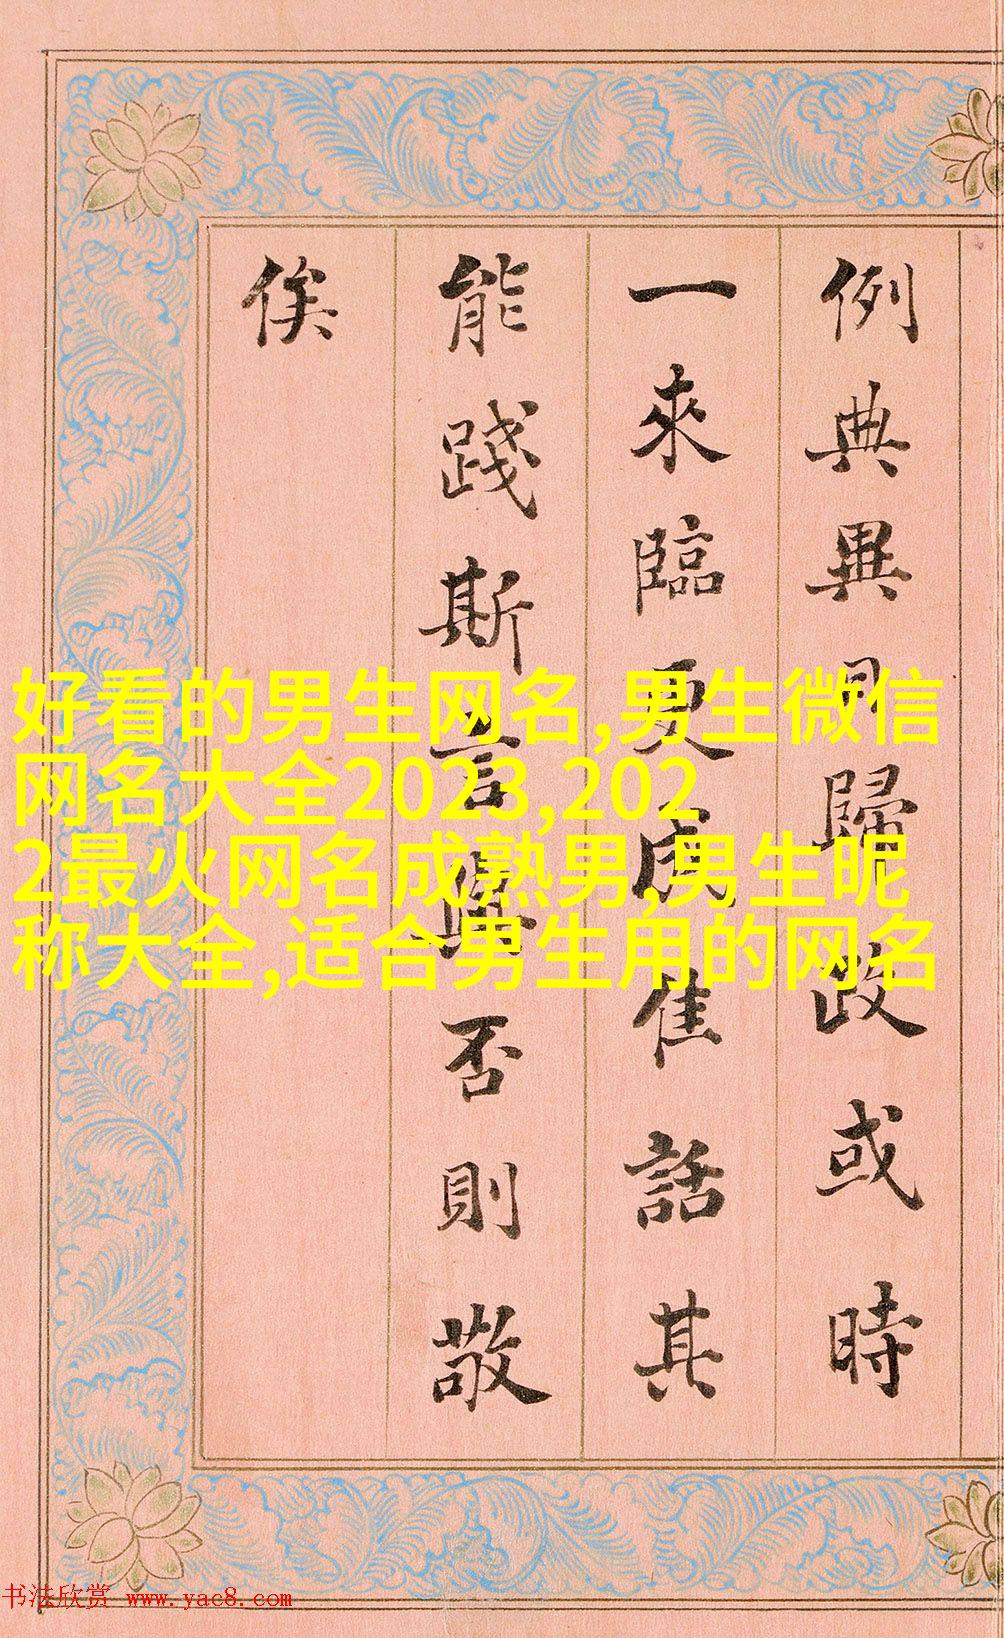 例典異日歸政或時
一來臨更成佳話其
能踐斯言與否則敬
俟
好看的男生网名,男生微信
网名大全2023,202
2最火网名成熟男,男生昵
称大全,适合男生用的网名
书法欣赏 www.yac8.com